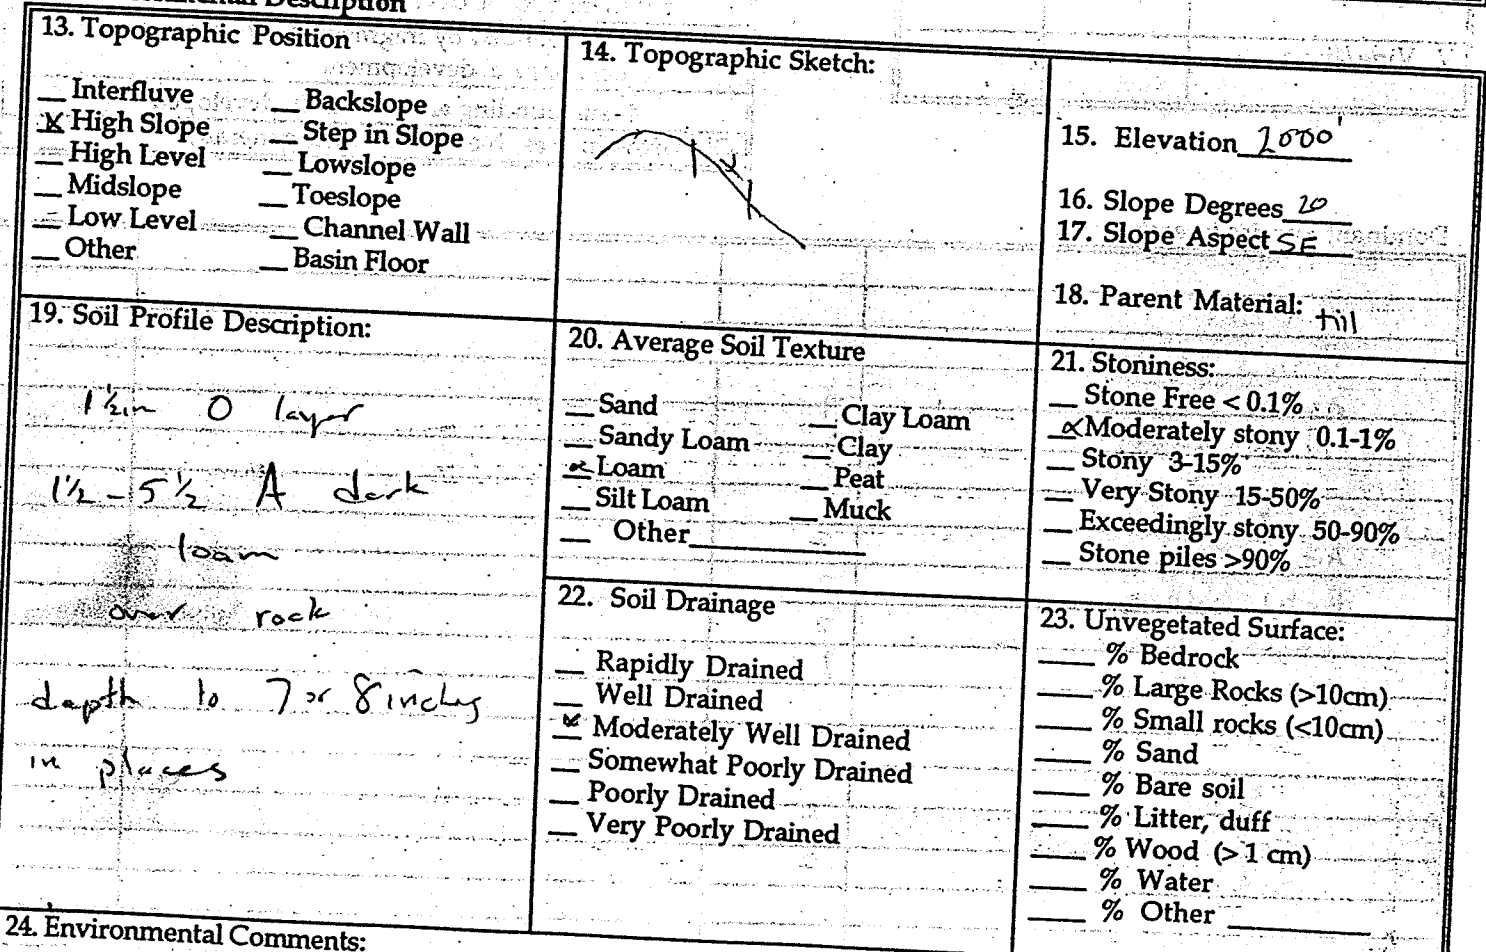 Description
13. Topographic Position
__ Interfluve __ Backslope
X High Slope __ Step in Slope
__ High Level __ Lowslope
__ Midslope __ Toeslope
__ Low Level __ Channel Wall
__ Other __ Basin Floor
14. Topographic Sketch:
15. Elevation 2000'
16. Slope Degrees 20
17. Slope Aspect SE
18. Parent Material: till
19. Soil Profile Description:
1½in O layer
1½-5½ A dark
loam
over rock
depth to 7 or 8 inches
in places
20. Average Soil Texture
__ Sand __ Clay Loam
__ Sandy Loam __ Clay
X Loam __ Peat
__ Silt Loam __ Muck
__ Other________
21. Stoniness:
__ Stone Free < 0.1%
X Moderately stony 0.1-1%
__ Stony 3-15%
__ Very Stony 15-50%
__ Exceedingly stony 50-90%
__ Stone piles >90%
22. Soil Drainage
__ Rapidly Drained
__ Well Drained
X Moderately Well Drained
__ Somewhat Poorly Drained
__ Poorly Drained
__ Very Poorly Drained
23. Unvegetated Surface:
____ % Bedrock
____ % Large Rocks (>10cm)
____ % Small rocks (<10cm)
____ % Sand
____ % Bare soil
____ % Litter, duff
____ % Wood (> 1 cm)
____ % Water
____ % Other ________
24. Environmental Comments: